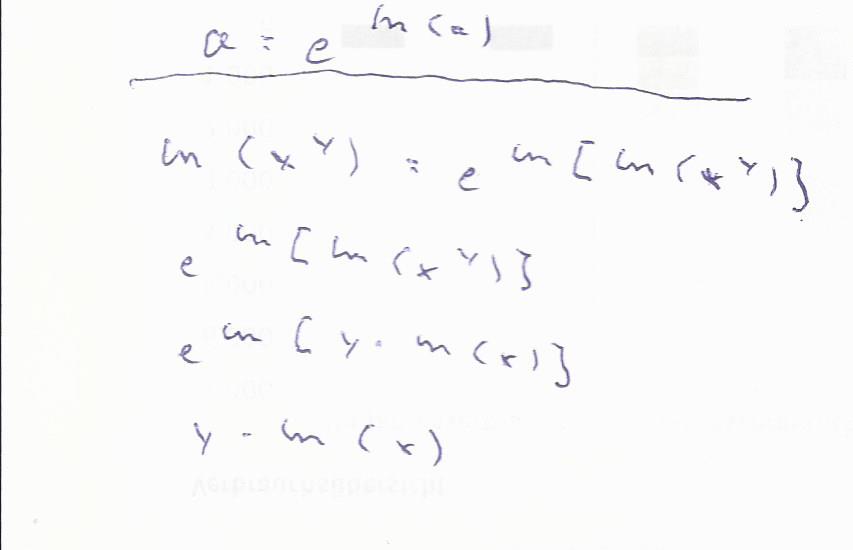 a = e^ln(a)
ln(x^y) = e^ln[ln(x^y)]
e^ln[ln(x^y)]
e^ln[y·ln(x)]
y·ln(x)
Verbrauchsübersicht